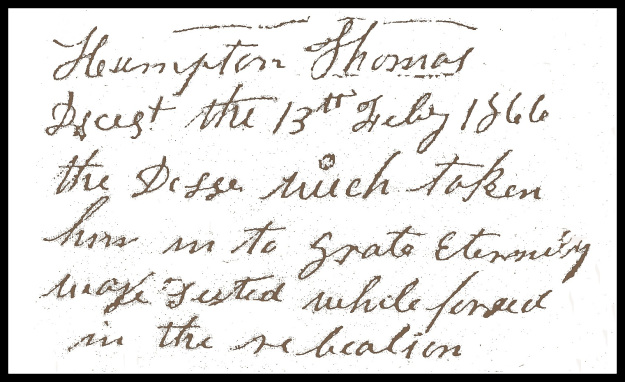 Humpton Thomas
Dsceast the 13th Feby 1866
the Desse which taken
him in to grate Eternity
was tested while forsed
in the rebealion